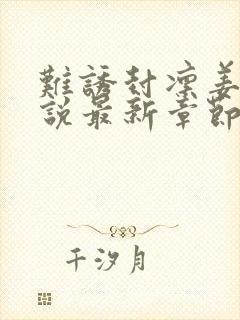 難誘封凜姜
說最新章節
千汐月